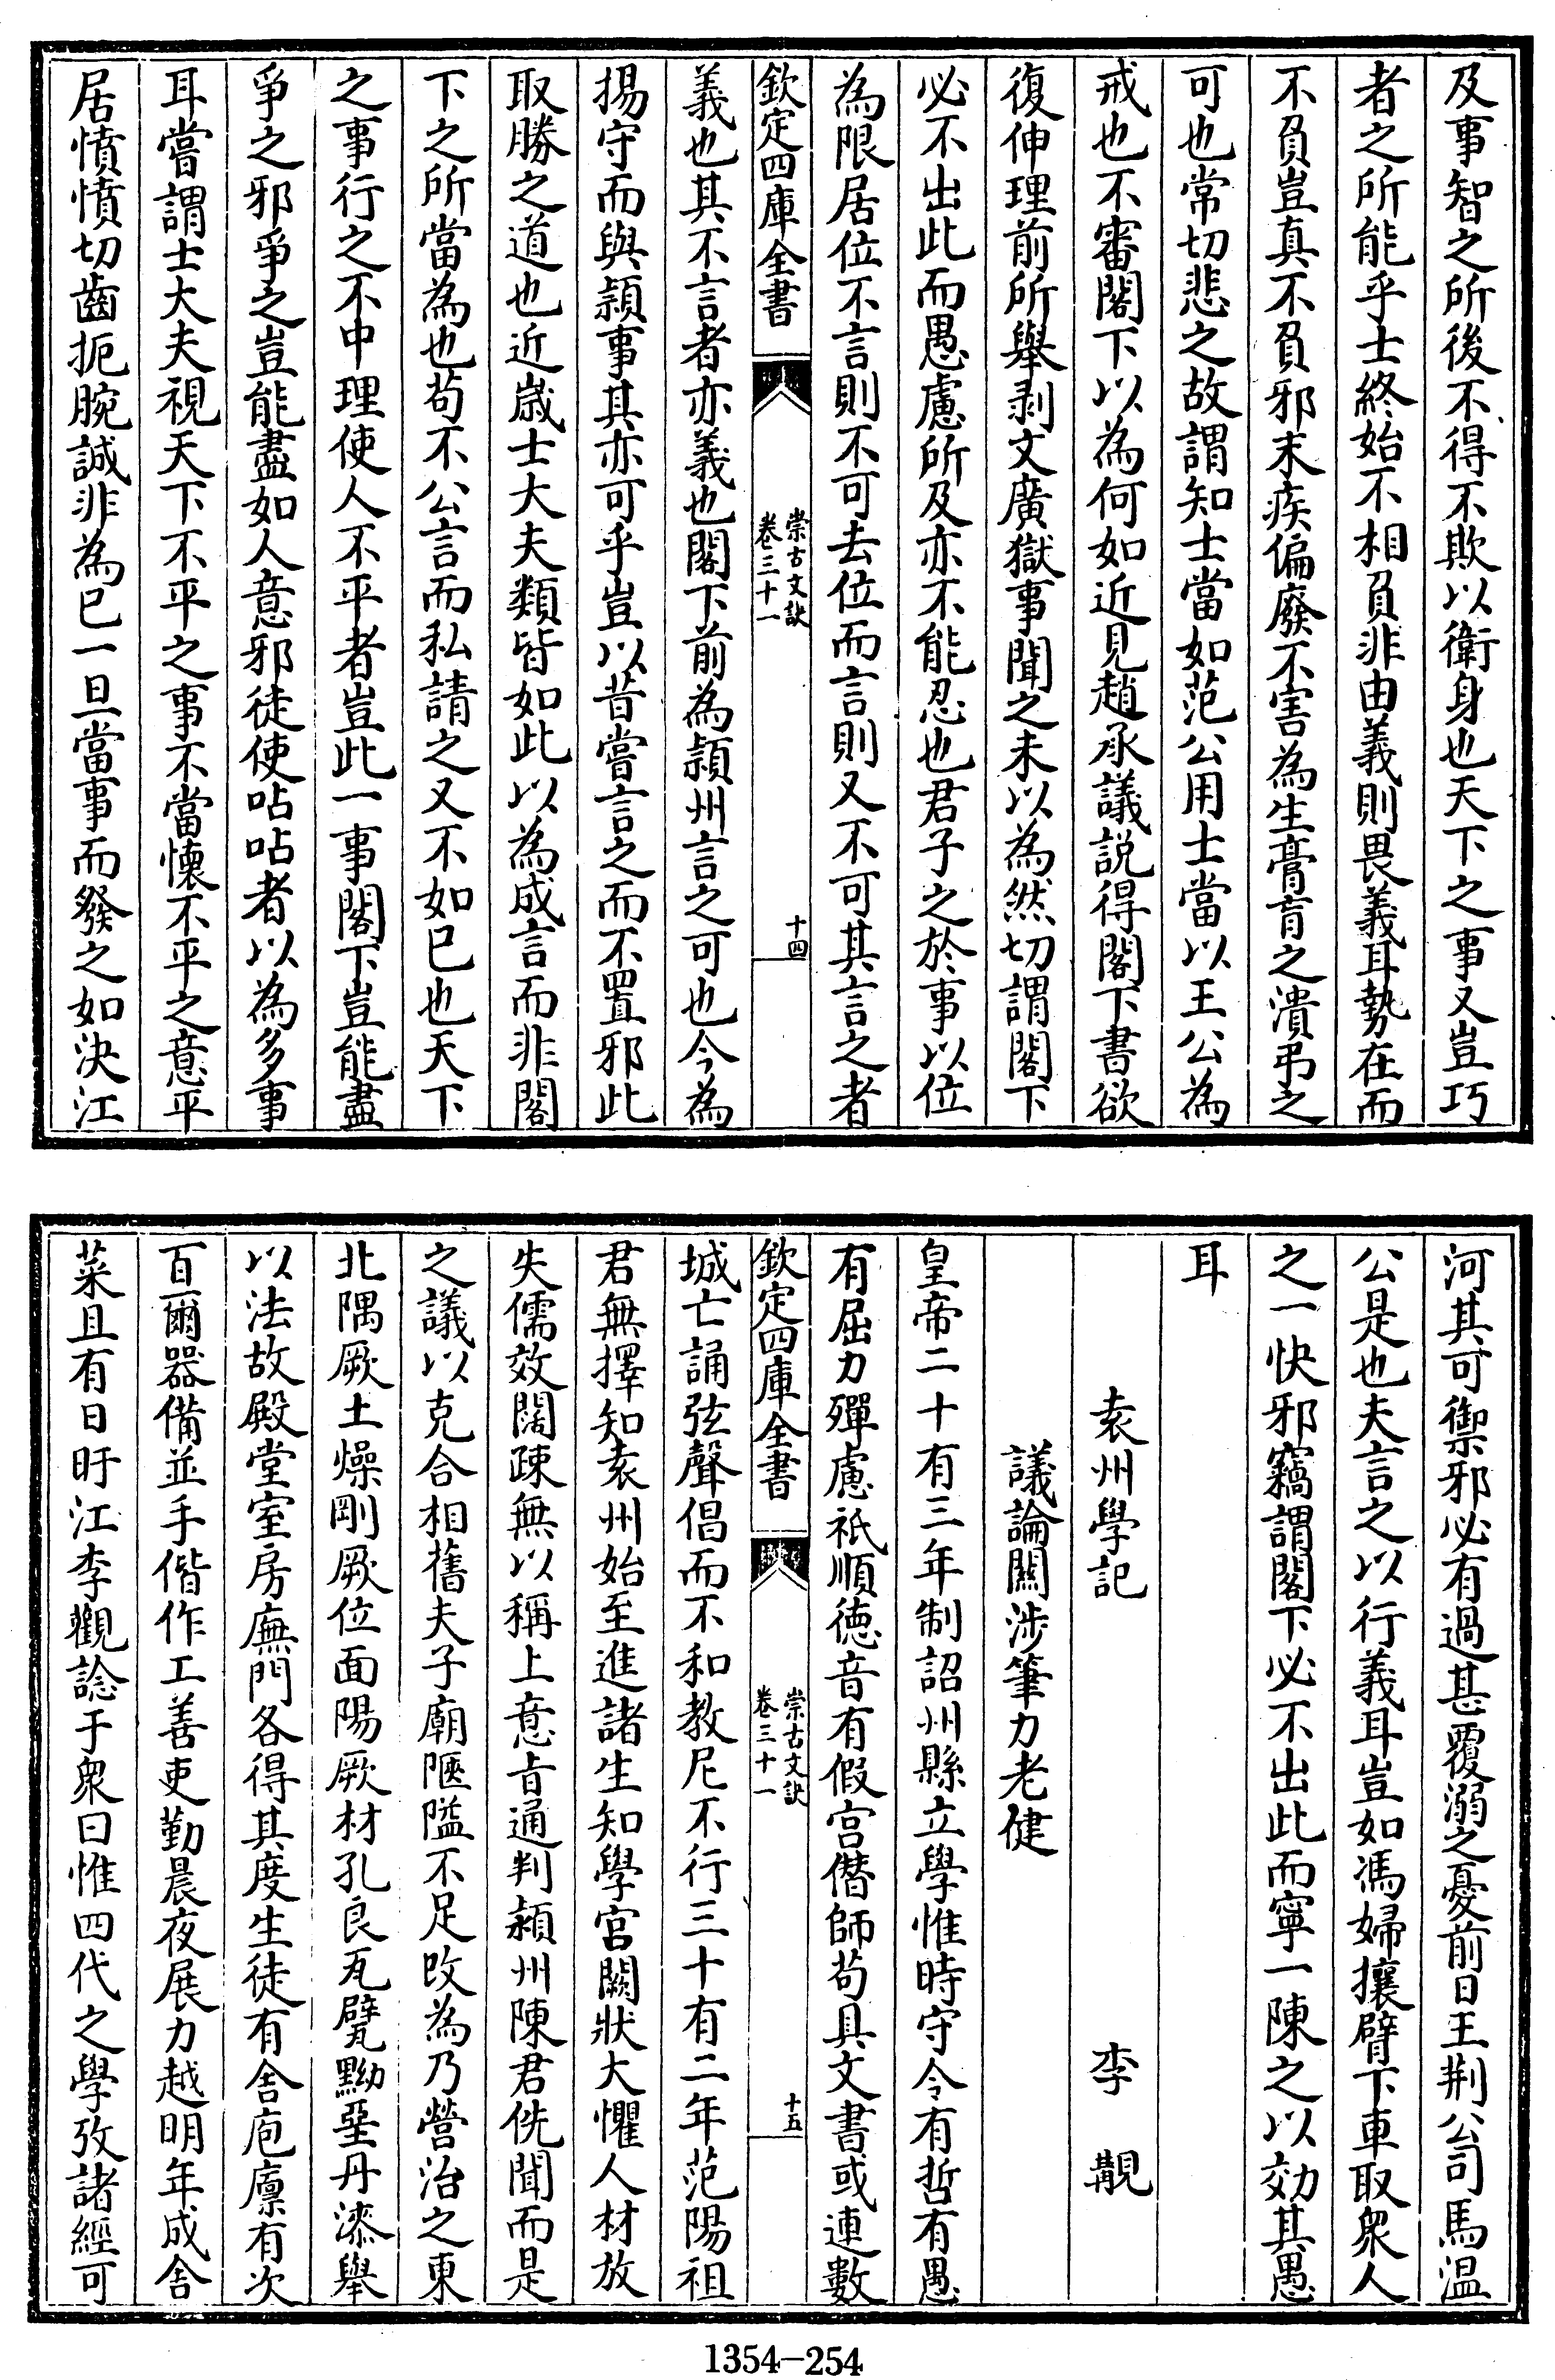 及事智之所後不得不欺以衛身也天下之事又豈巧
者之所能乎士終始不相負非由義則畏義耳勢在而
不負豈真不負邪末疾偏廢不害為生膏肓之潰弔之
可也常切悲之故謂知士當如范公用士當以王公為
戒也不審閣下以為何如近見趙承議説得閣下書欲
復伸理前所舉剥文廣獄事聞之未以為然切謂閣下
必不出此而愚慮所及亦不能忍也君子之於事以位
為限居位不言則不可去位而言則又不可其言之者
欽定四庫全書
崇古文訣
卷三十一
十四
義也其不言者亦義也閣下前為潁州言之可也今為
揚守而與潁事其亦可乎豈以昔嘗言之而不置邪此
取勝之道也近嵗士大夫類皆如此以為成言而非閣
下之所當為也茍不公言而私請之又不如已也天下
之事行之不中理使人不平者豈此一事閣下豈能盡
爭之邪爭之豈能盡如人意邪徒使呫呫者以為多事
耳嘗謂士大夫視天下不平之事不當懷不平之意平
居憤憤切齒扼腕誠非為已一旦當事而發之如决江
河其可禦邪必有過甚覆溺之憂前日王荆公司馬温
公是也夫言之以行義耳豈如馮婦攘臂下車取衆人
之一快邪竊謂閣下必不出此而寧一陳之以効其愚
耳
袁州學記 李覯
議論關涉筆力老健
皇帝二十有三年制詔州縣立學惟時守令有哲有愚
有屈力殫慮祇順徳音有假宫僭師茍具文書或連數
欽定四庫全書
崇古文訣
卷三十一
十五
城亡誦弦聲倡而不和教尼不行三十有二年范陽祖
君無擇知袁州始至進諸生知學宫闕狀大懼人材放
失儒效闊疎無以稱上意㫖通判潁州陳君侁聞而是
之議以克合相舊夫子廟陿隘不足改為乃營治之東
北隅厥土燥剛厥位面陽厥材孔良瓦甓黝堊丹漆舉
以法故殿堂室房廡門各得其度生徒有舎庖廪有次
百爾器備並手偕作工善吏勤晨夜展力越明年成舎
菜且有日盱江李觀諗于衆曰惟四代之學攷諸經可
1354-254